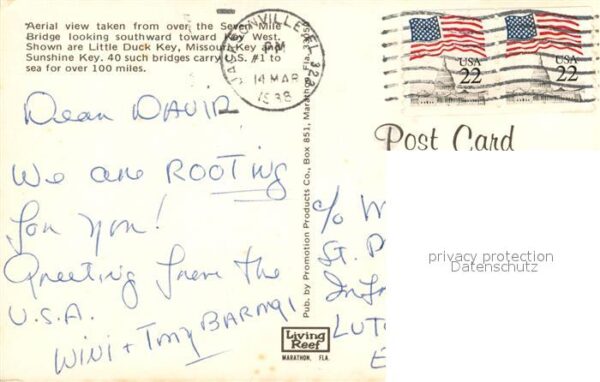 "Aerial view taken from over the Seven Mile
Bridge looking southward toward Key West.
Shown are Little Duck Key, Missouri Key and
Sunshine Key. 40 such bridges carry U.S. #1 to
sea for over 100 miles.
JACKSONVILLE, FL 322
PM
14 MAR
1988
USA
22
USA
22
Post Card
Dear DAVID
We are ROOTING
for you!
Greeting from the
U.S.A.
WINI + Tony
Pub. by Promotion Products Co., Box 851, Marathon, Fla. 33050
Living
Reef
MARATHON, FLA.
c/o
St.
LUT
E
privacy protection
Datenschutz